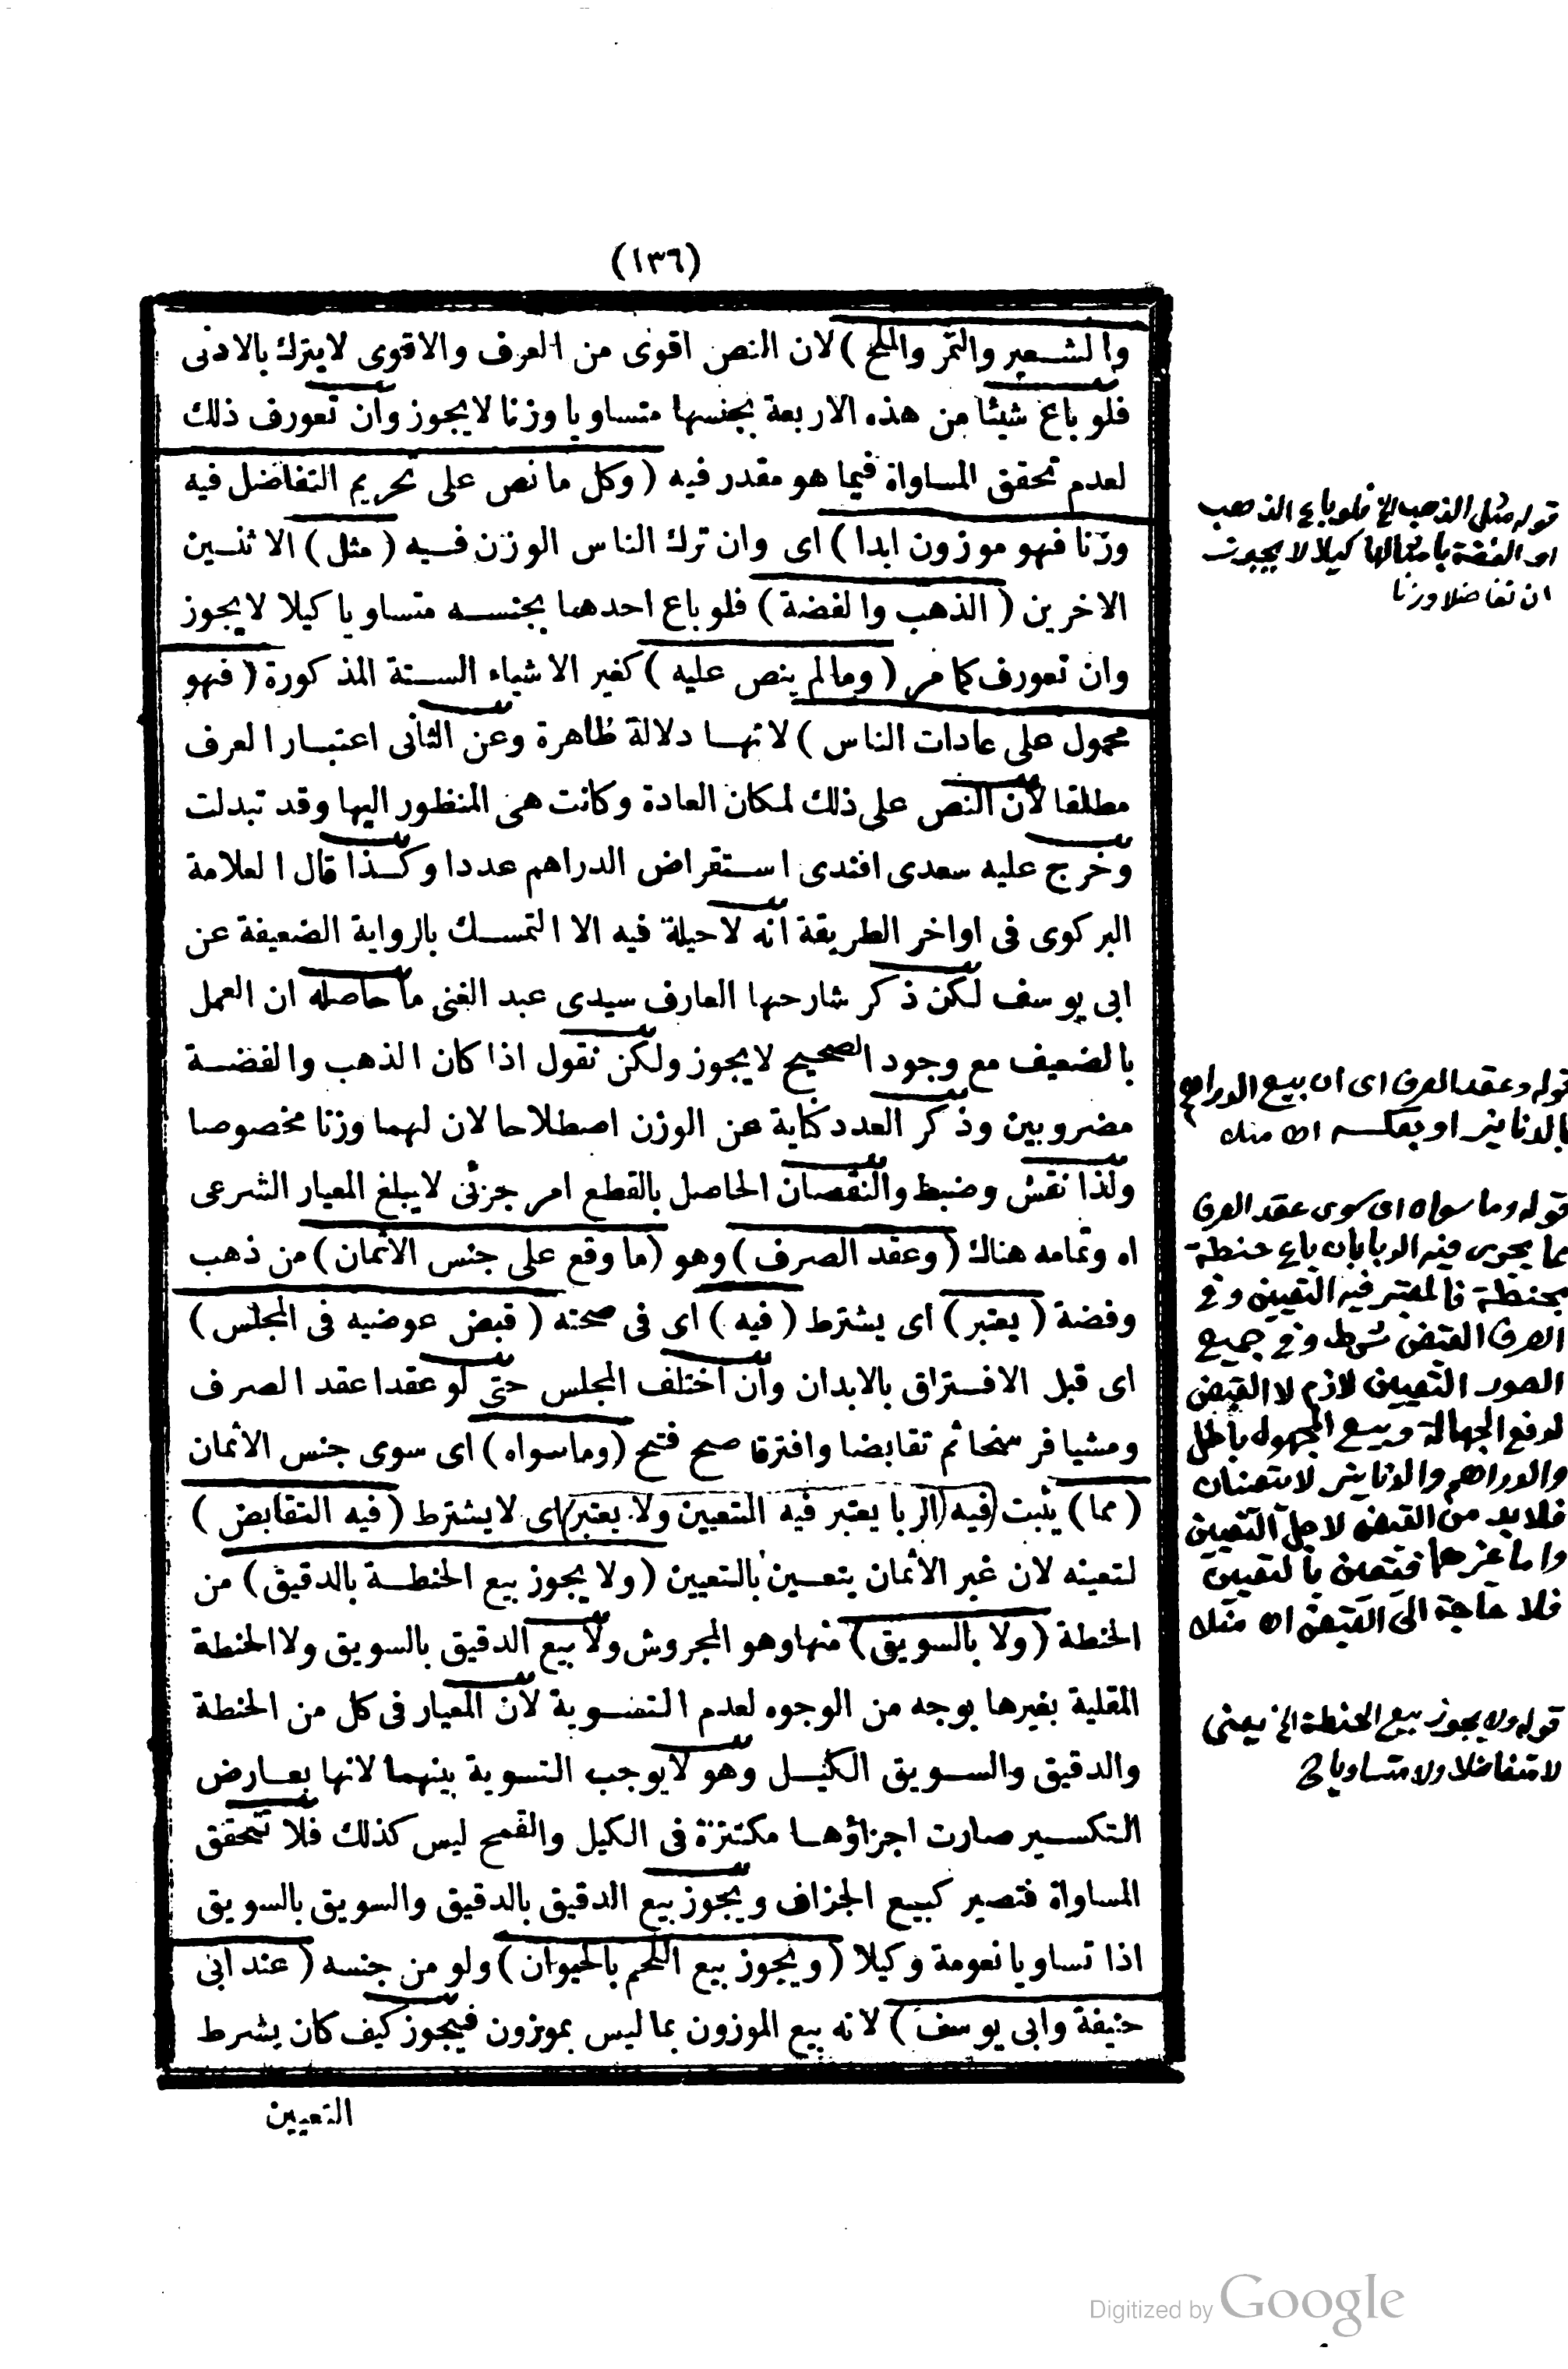 (١٣٦)
والشعير والتمر والملح) لان النص اقوى من العرف والاقوى لايترك بالادنى
فلو باع شيئا من هذه الاربعة بجنسها متساويا وزنا لايجوز وان تعورف ذلك
لعدم تحقق المساواة فيما هو مقدر فيه (وكل ما نص على تحريم التفاضل فيه
وزنا فهو موزون ابدا) اى وان ترك الناس الوزن فيه (مثل) الاثنين
الاخرين (الذهب والفضة) فلو باع احدهما بجنسه متساويا كيلا لايجوز
وان تعورف كما مر (ومالم ينص عليه) كغير الاشياء الستة المذكورة (فهو
محمول على عادات الناس) لانها دلالة ظاهرة وعن الثانى اعتبار العرف
مطلقا لان النص على ذلك لمكان العادة وكانت هى المنظور اليها وقد تبدلت
وخرج عليه سعدى افندى استقراض الدراهم عددا وكذا قال العلامة
البركوى فى اواخر الطريقة انه لاحيلة فيه الا التمسك بالرواية الضعيفة عن
ابى يوسف لكن ذكر شارحها العارف سيدى عبد الغنى ما حاصله ان العمل
بالضعيف مع وجود الصحيح لايجوز ولكن نقول اذا كان الذهب والفضة
مضروبين وذكر العدد كناية عن الوزن اصطلاحا لان لهما وزنا مخصوصا
ولذا نقش وضبط والنقصان الحاصل بالقطع امر جزئى لايبلغ المعيار الشرعى
اه وتمامه هناك (وعقد الصرف) وهو (ما وقع على جنس الاثمان) من ذهب
وفضة (يعتبر) اى يشترط (فيه) اى فى صحته (قبض عوضيه فى المجلس)
اى قبل الافتراق بالابدان وان اختلف المجلس حتى لو عقدا عقد الصرف
ومشيا فرسخا ثم تقابضا وافترقا صح فتح (وماسواه) اى سوى جنس الاثمان
(مما) يثبت (فيه) الربا يعتبر فيه التعيين ولا يعتبر) اى لايشترط (فيه التقابض)
لتعينه لان غير الاثمان يتعين بالتعيين (ولا يجوز بيع الحنطة بالدقيق) من
الحنطة (ولا بالسويق) منها وهو المجروش ولا بيع الدقيق بالسويق ولا الحنطة
المقلية بغيرها بوجه من الوجوه لعدم التسوية لان المعيار فى كل من الحنطة
والدقيق والسويق الكيل وهو لايوجب التسوية بينهما لانها بعارض
التكسير صارت اجزاؤها مكتنزة فى الكيل والقمح ليس كذلك فلا تتحقق
المساواة فتصير كبيع الجزاف ويجوز بيع الدقيق بالدقيق والسويق بالسويق
اذا تساويا نعومة وكيلا (ويجوز بيع اللحم بالحيوان) ولو من جنسه (عند ابى
حنيفة وابى يوسف) لانه بيع الموزون بما ليس بموزون فيجوز كيف كان بشرط
التعيين
قوله مثل الذهب الخ فلو باع الذهب
او الفضة بامثالها كيلا لا يجوز
ان تفاضلا وزنا
قوله وعقد الصرف اى ان بيع الدراهم
بالدنانير او بعكسه اه منه
قوله وما سواه اى سوى عقد الصرف
مما يجرى فيه الربا بان باع حنطة
بحنطة فالمعتبر فيه التعيين وفى
الصرف القبض شرط وفى جميع
الصور التعيين لازم لا القبض
لدفع الجهالة وبيع المجهول باطل
والدراهم والدنانير لا يتعينان
فلا بد من القبض لاجل التعيين
واما غيرهما فتعين بالتعيين
فلا حاجة الى القبض اه منه
قوله ولا يجوز بيع الحنطة الخ يعنى
لا متفاضلا ولا متساويا
Digitized by Google